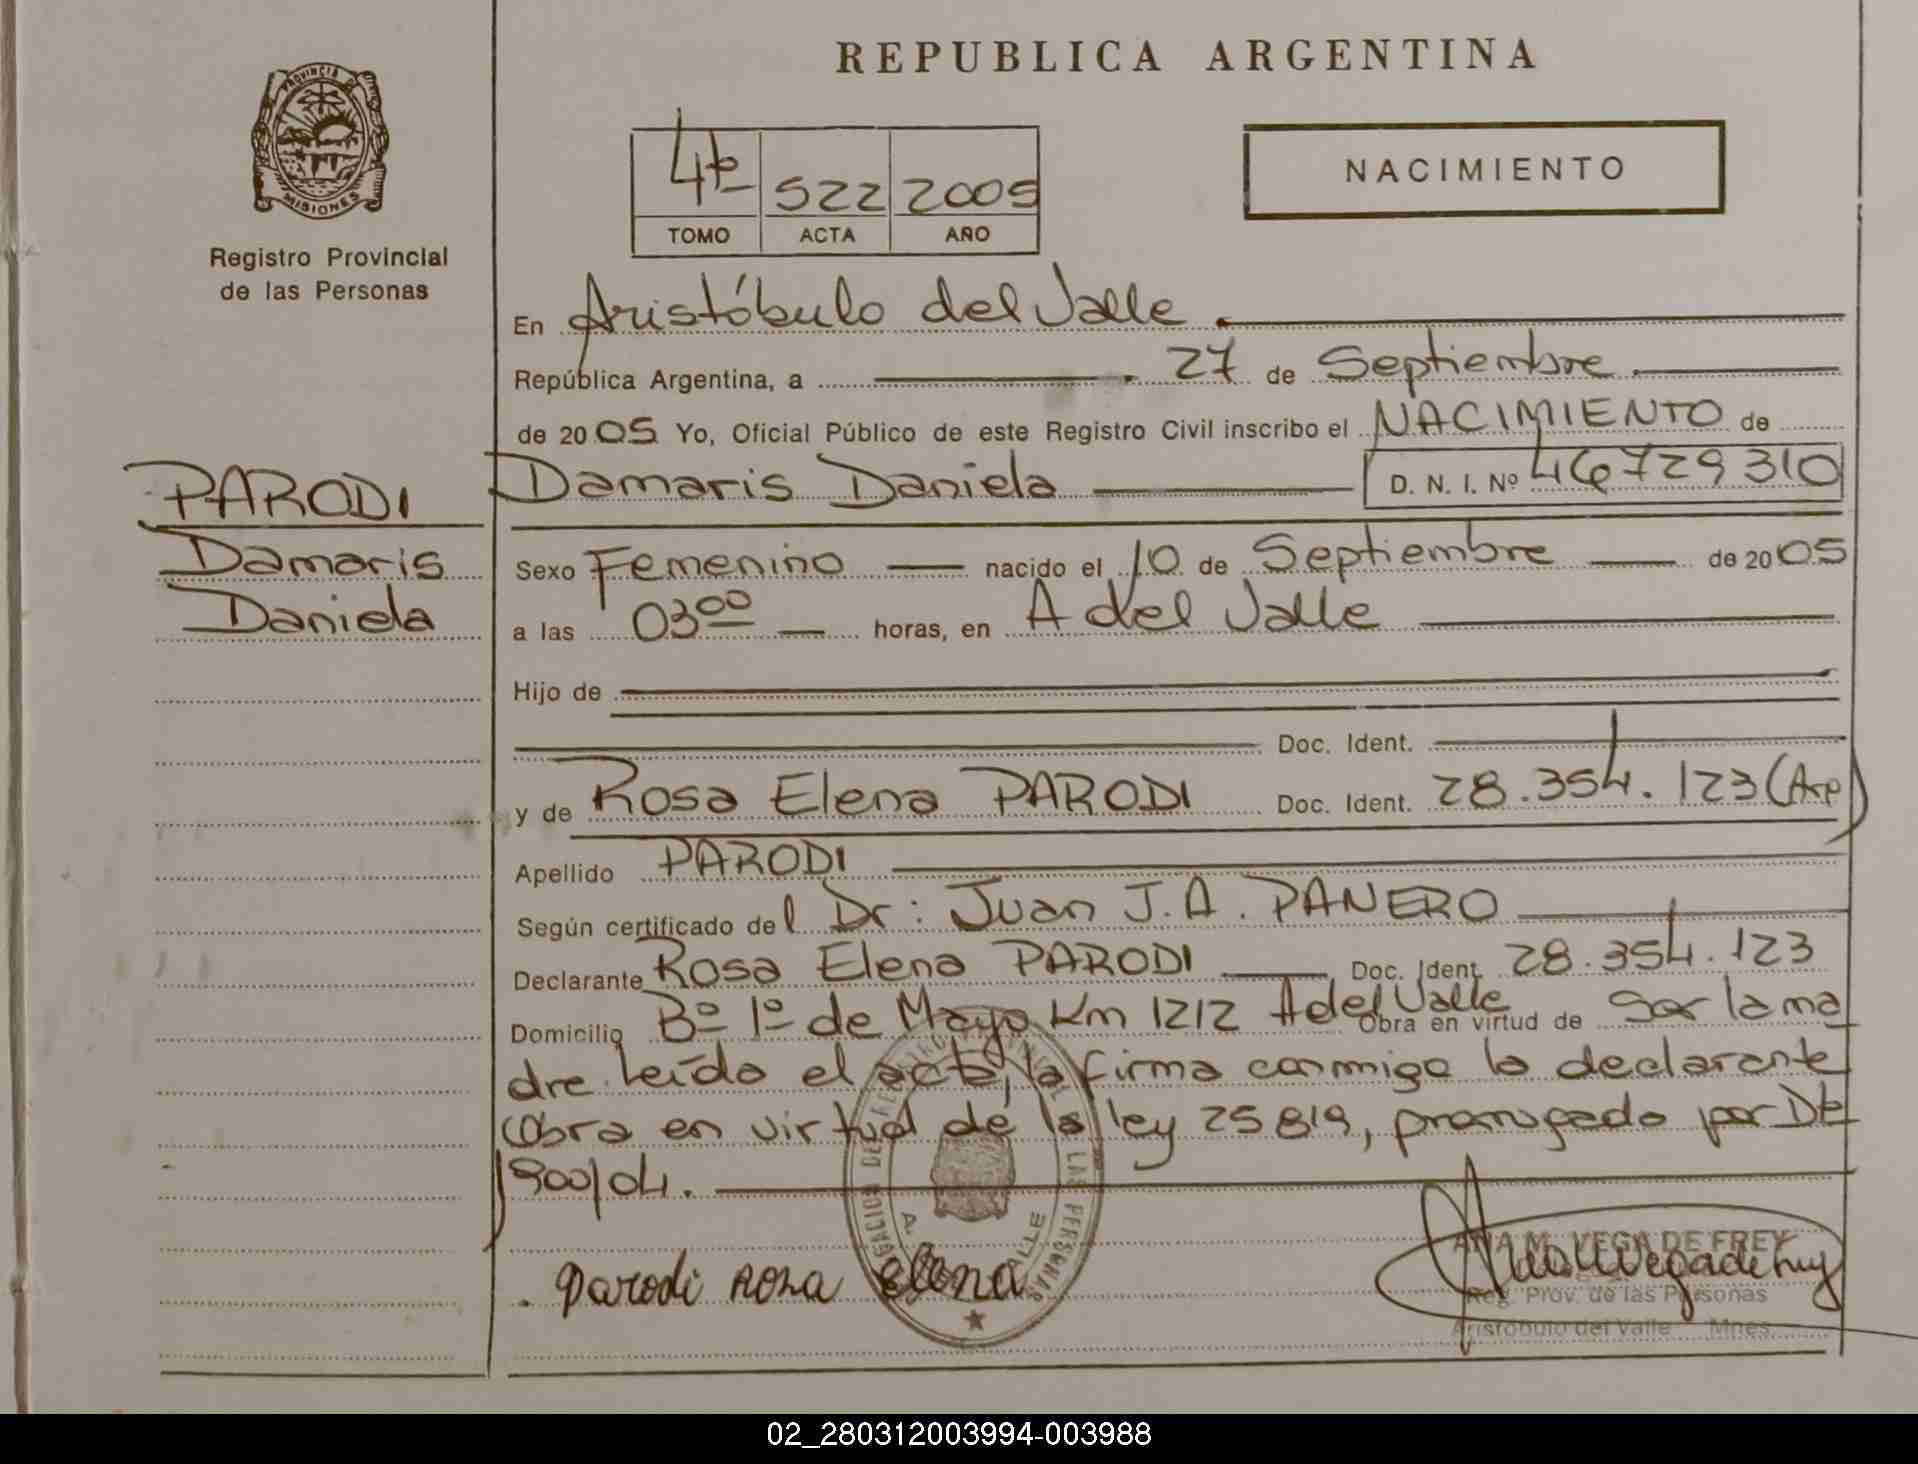 REPUBLICA ARGENTINA
PROVINCIA DE
MISIONES
Registro Provincial
de las Personas
4to 522 2005
TOMO ACTA AÑO
NACIMIENTO
En Aristóbulo del Valle.
República Argentina, a 27 de Septiembre.
de 2005 Yo, Oficial Público de este Registro Civil inscribo el NACIMIENTO de
PARODI
Damaris Daniela D. N. I. Nº 46729310
Damaris
Sexo Femenino nacido el 10 de Septiembre de 2005
Daniela
a las 03 00 horas, en A del Valle
Hijo de
Doc. Ident.
y de Rosa Elena PARODI Doc. Ident. 28.354.123 (Arg)
Apellido PARODI
Según certificado del Dr: Juan J.A. PANERO
Declarante Rosa Elena PARODI Doc. Ident. 28.354.123
Domicilio Bº 1º de Mayo Km 1212 A del Valle Obra en virtud de ser la ma
dre leído el acta, la firma conmigo la declarante
Obra en virtud de la ley 25819, prorrogado por Dto
900/04.
Parodi Rosa Elena
ANA M. VEGA DE FREY
Reg. Prov. de las Personas
Aristóbulo del Valle Mnes.
A. VALLE
02_280312003994-003988